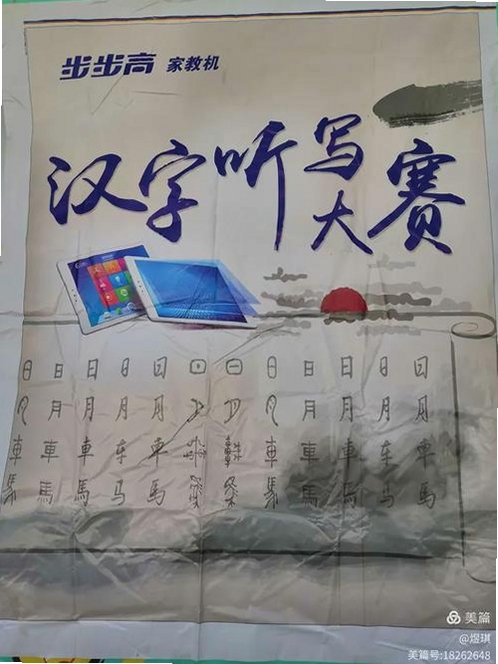 步步高 家教机
汉字听写大赛
日 日 日 日 日 日 日 日 日 日
月 月 月 月 月 月 月 月 月 月
車 車 車 车 車 車 車 車 车 車
馬 馬 馬 马 馬 馬 馬 馬 马 馬
美篇
@煜琪
美篇号:18262648